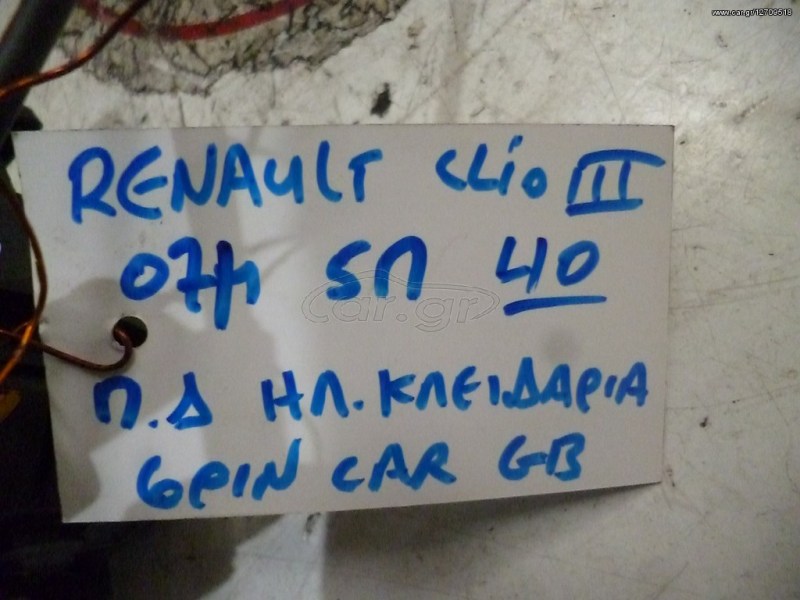 www.car.gr/12709518
RENAULT CLio III
07μ 5Π 40
car.gr
Π.Δ ΗΛ.ΚΛΕΙΔΑΡΙΑ
6PIN CAR GB